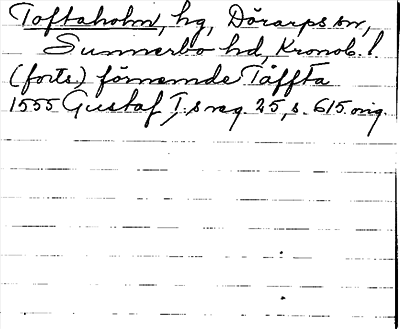 Toftaholm, hg, Dörarps sn,
Sunnerbo hd, Kronob. l.
(forts) förnemde Tåffta
1555 Gustaf I;s reg. 25, s. 615. orig.